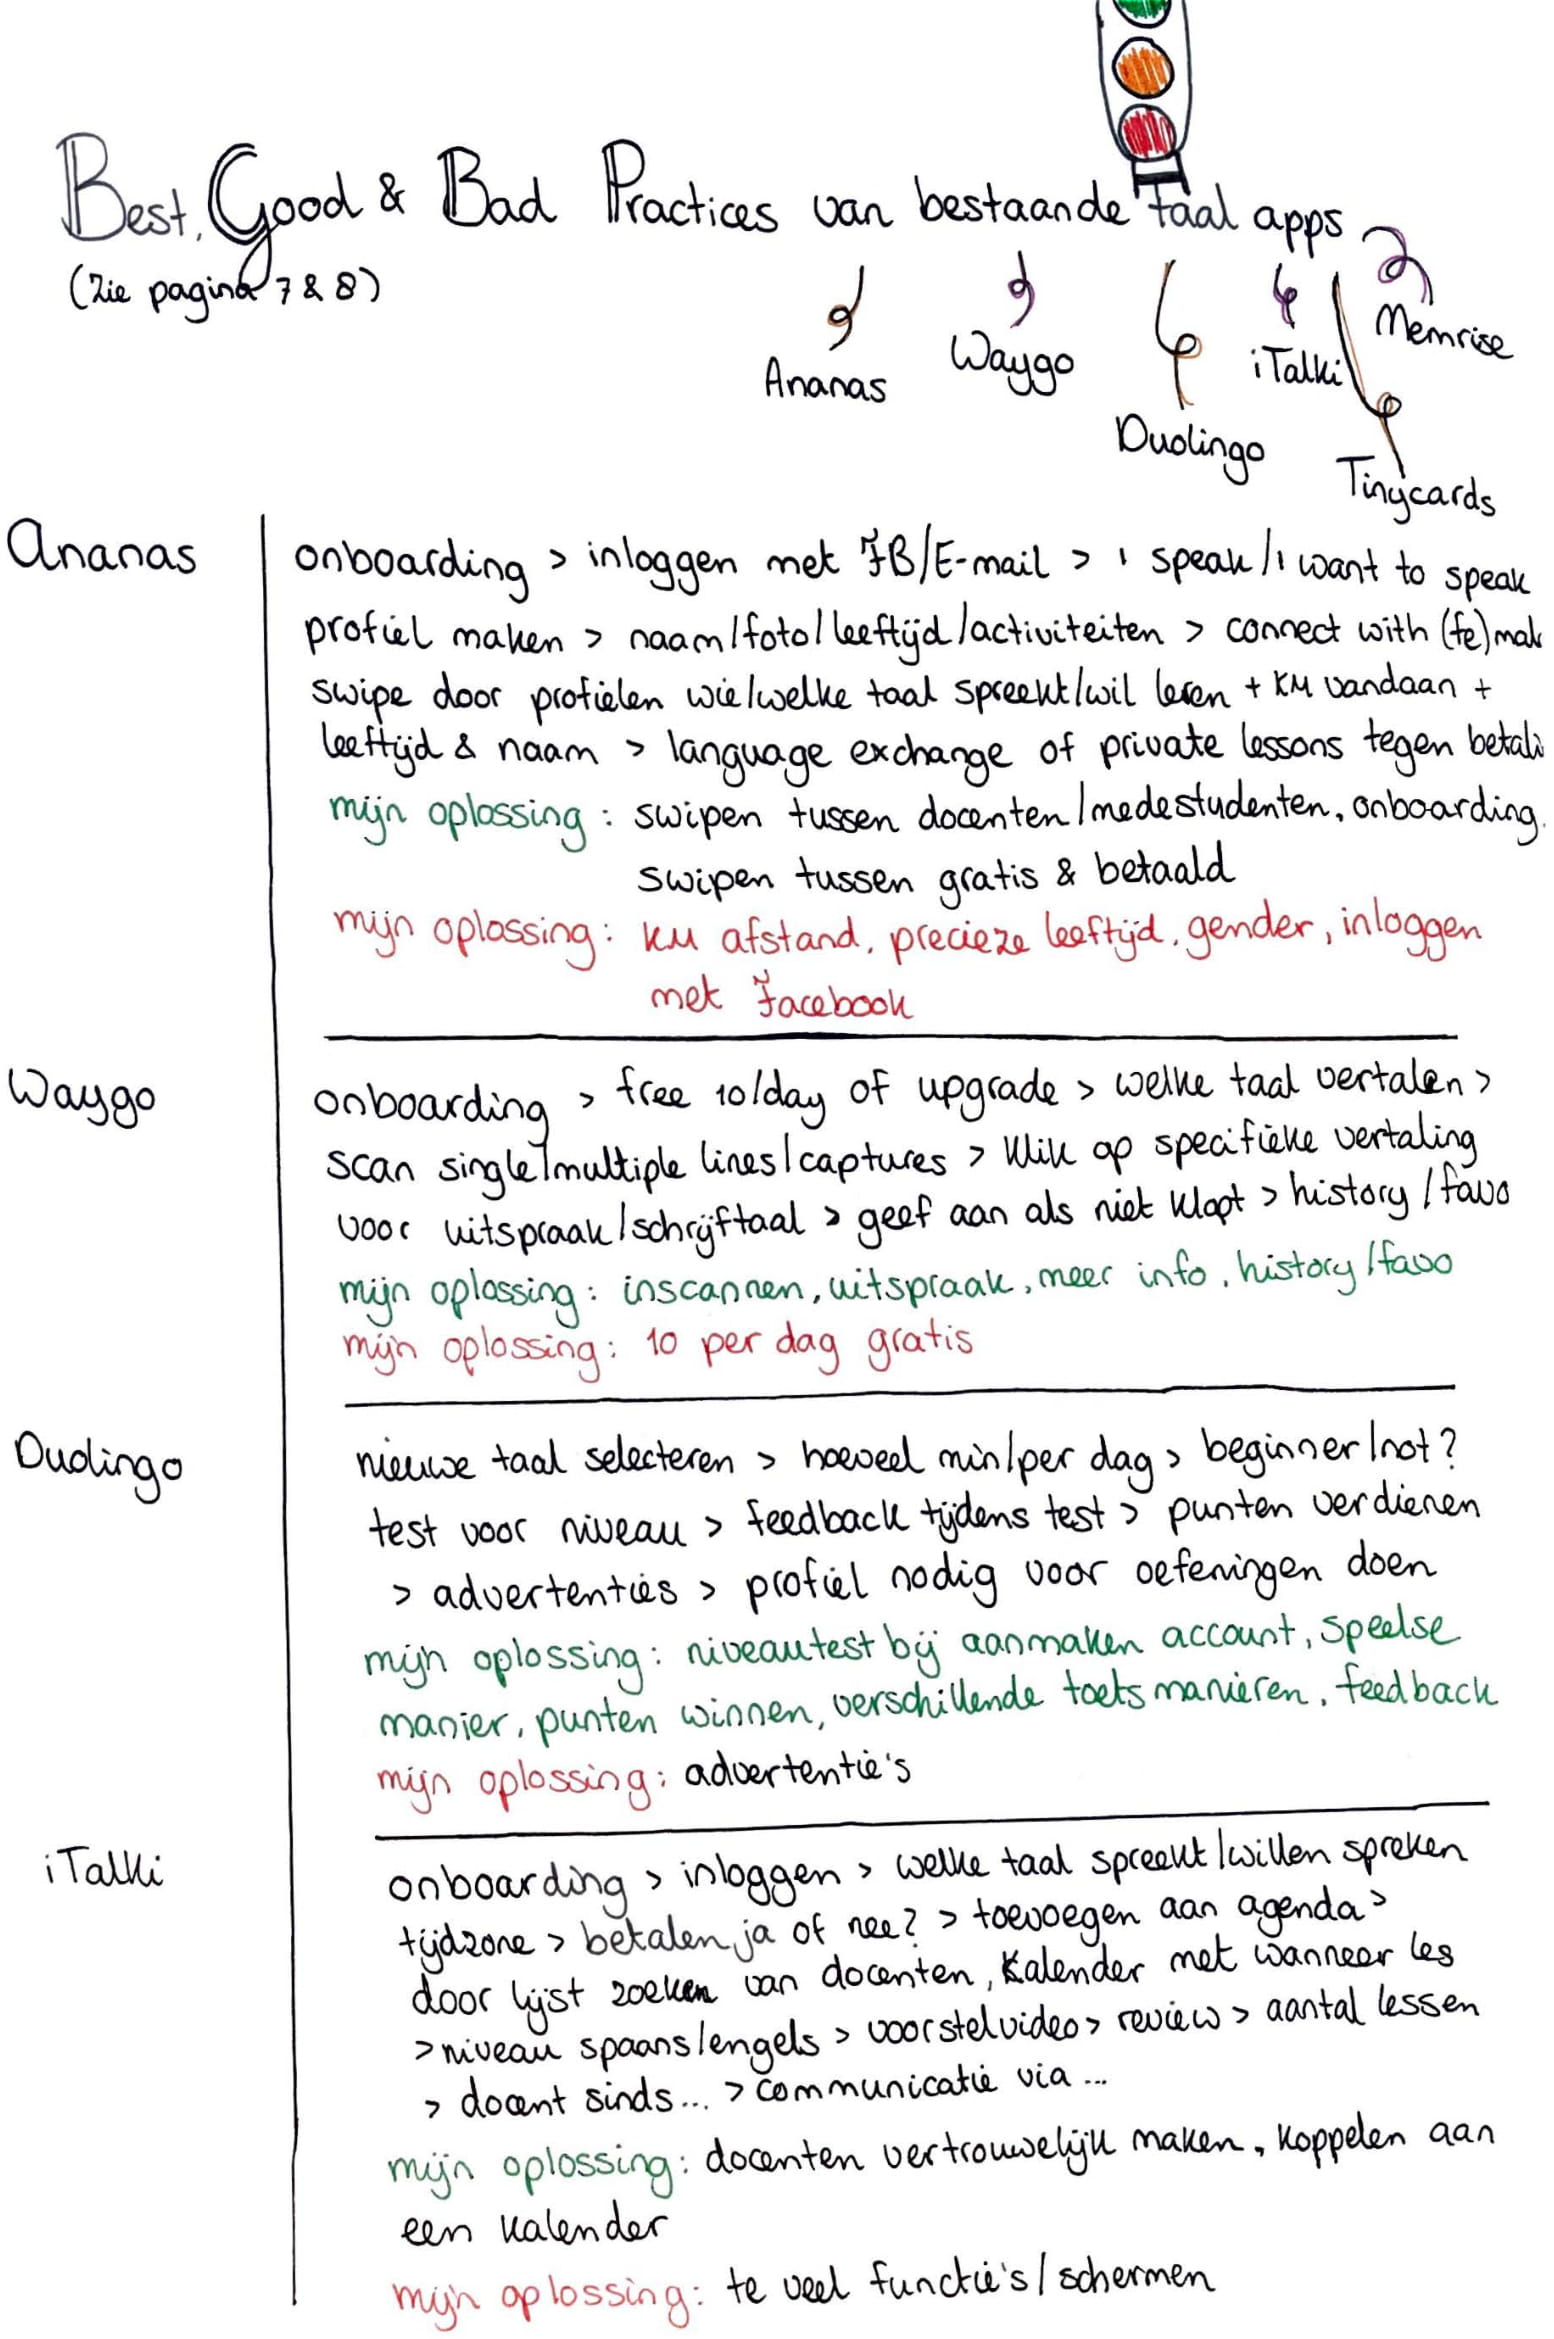 Best, Good & Bad Practices van bestaande taal apps
(Zie pagina 7 & 8)
Ananas
Waygo
Duolingo
iTalki
Tinycards
Memrise
Ananas
onboarding > inloggen met FB/E-mail > I speak/I want to speak
profiel maken > naam/foto/leeftijd/activiteiten > connect with (fe)mal
swipe door profielen wie/welke taal spreekt/wil leren + KM vandaan +
leeftijd & naam > language exchange of private lessons tegen betali
mijn oplossing: swipen tussen docenten/medestudenten, onboarding.
swipen tussen gratis & betaald
mijn oplossing: KM afstand, precieze leeftijd, gender, inloggen
met Facebook
Waygo
onboarding > free 10/day of upgrade > welke taal vertalen >
scan single/multiple lines/captures > klik op specifieke vertaling
voor uitspraak/schrijftaal > geef aan als niet klopt > history/favo
mijn oplossing: inscannen, uitspraak, meer info, history/favo
mijn oplossing: 10 per dag gratis
Duolingo
nieuwe taal selecteren > hoeveel min/per dag > beginner/not?
test voor niveau > feedback tijdens test > punten verdienen
> advertenties > profiel nodig voor oefeningen doen
mijn oplossing: niveautest bij aanmaken account, speelse
manier, punten winnen, verschillende toets manieren, feedback
mijn oplossing: advertentie's
iTalki
onboarding > inloggen > welke taal spreekt/willen spreken
tijdzone > betalen ja of nee? > toevoegen aan agenda >
door lijst zoeken van docenten, kalender met wanneer les
> niveau spaans/engels > voorstelvideo > review > aantal lessen
> docent sinds... > communicatie via ...
mijn oplossing: docenten vertrouwelijk maken, koppelen aan
een kalender
mijn oplossing: te veel functie's/schermen